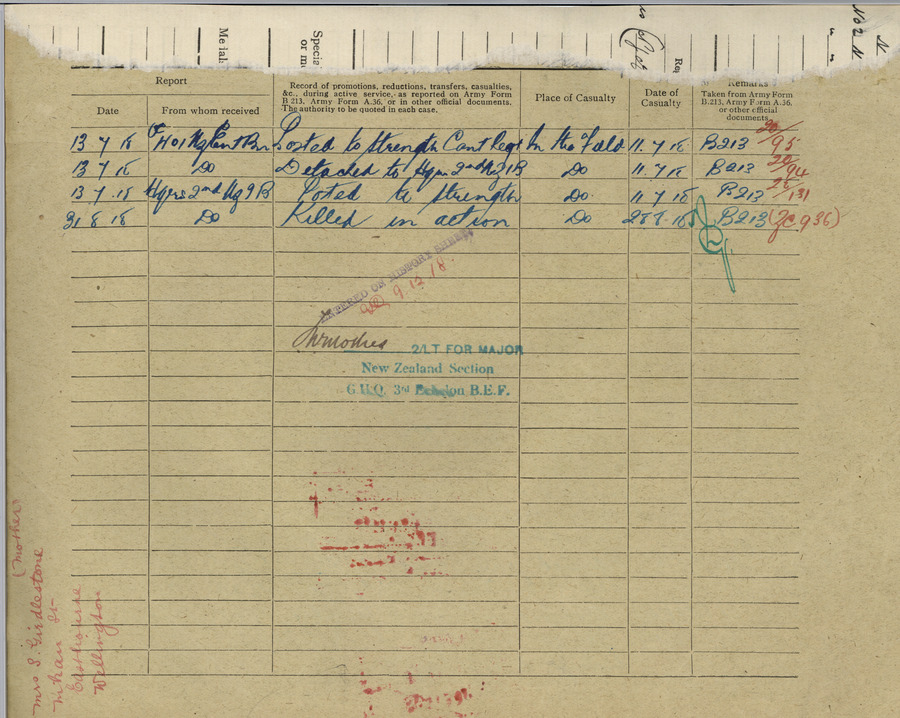 Report
Record of promotions, reductions, transfers, casualties,
&c., during active service, as reported on Army Form
B 213, Army Form A.36, or in other official documents.
The authority to be quoted in each case.
Place of Casualty
Date of
Casualty
Remarks
Taken from Army Form
B.213, Army Form A.36,
or other official
documents.
Date
From whom received
13 7 18 Posted to Strength Cant Regt In the Field 11 7 18 B213 20/95
13 7 18 Do Detached to Hqrs 2nd Do 11 7 18 B213 94
13 7 18 Hqrs 2nd Posted to Strength Do 11 7 18 B213 131
31 8 18 Do Killed in action Do 18 B213
ENTERED ON HISTORY SHEET
9.12.18
2/LT FOR MAJOR
New Zealand Section
G.H.Q. 3rd Echelon B.E.F.
Mrs S. Girdlestone (Mother)
St
Eastbourne
Wellington